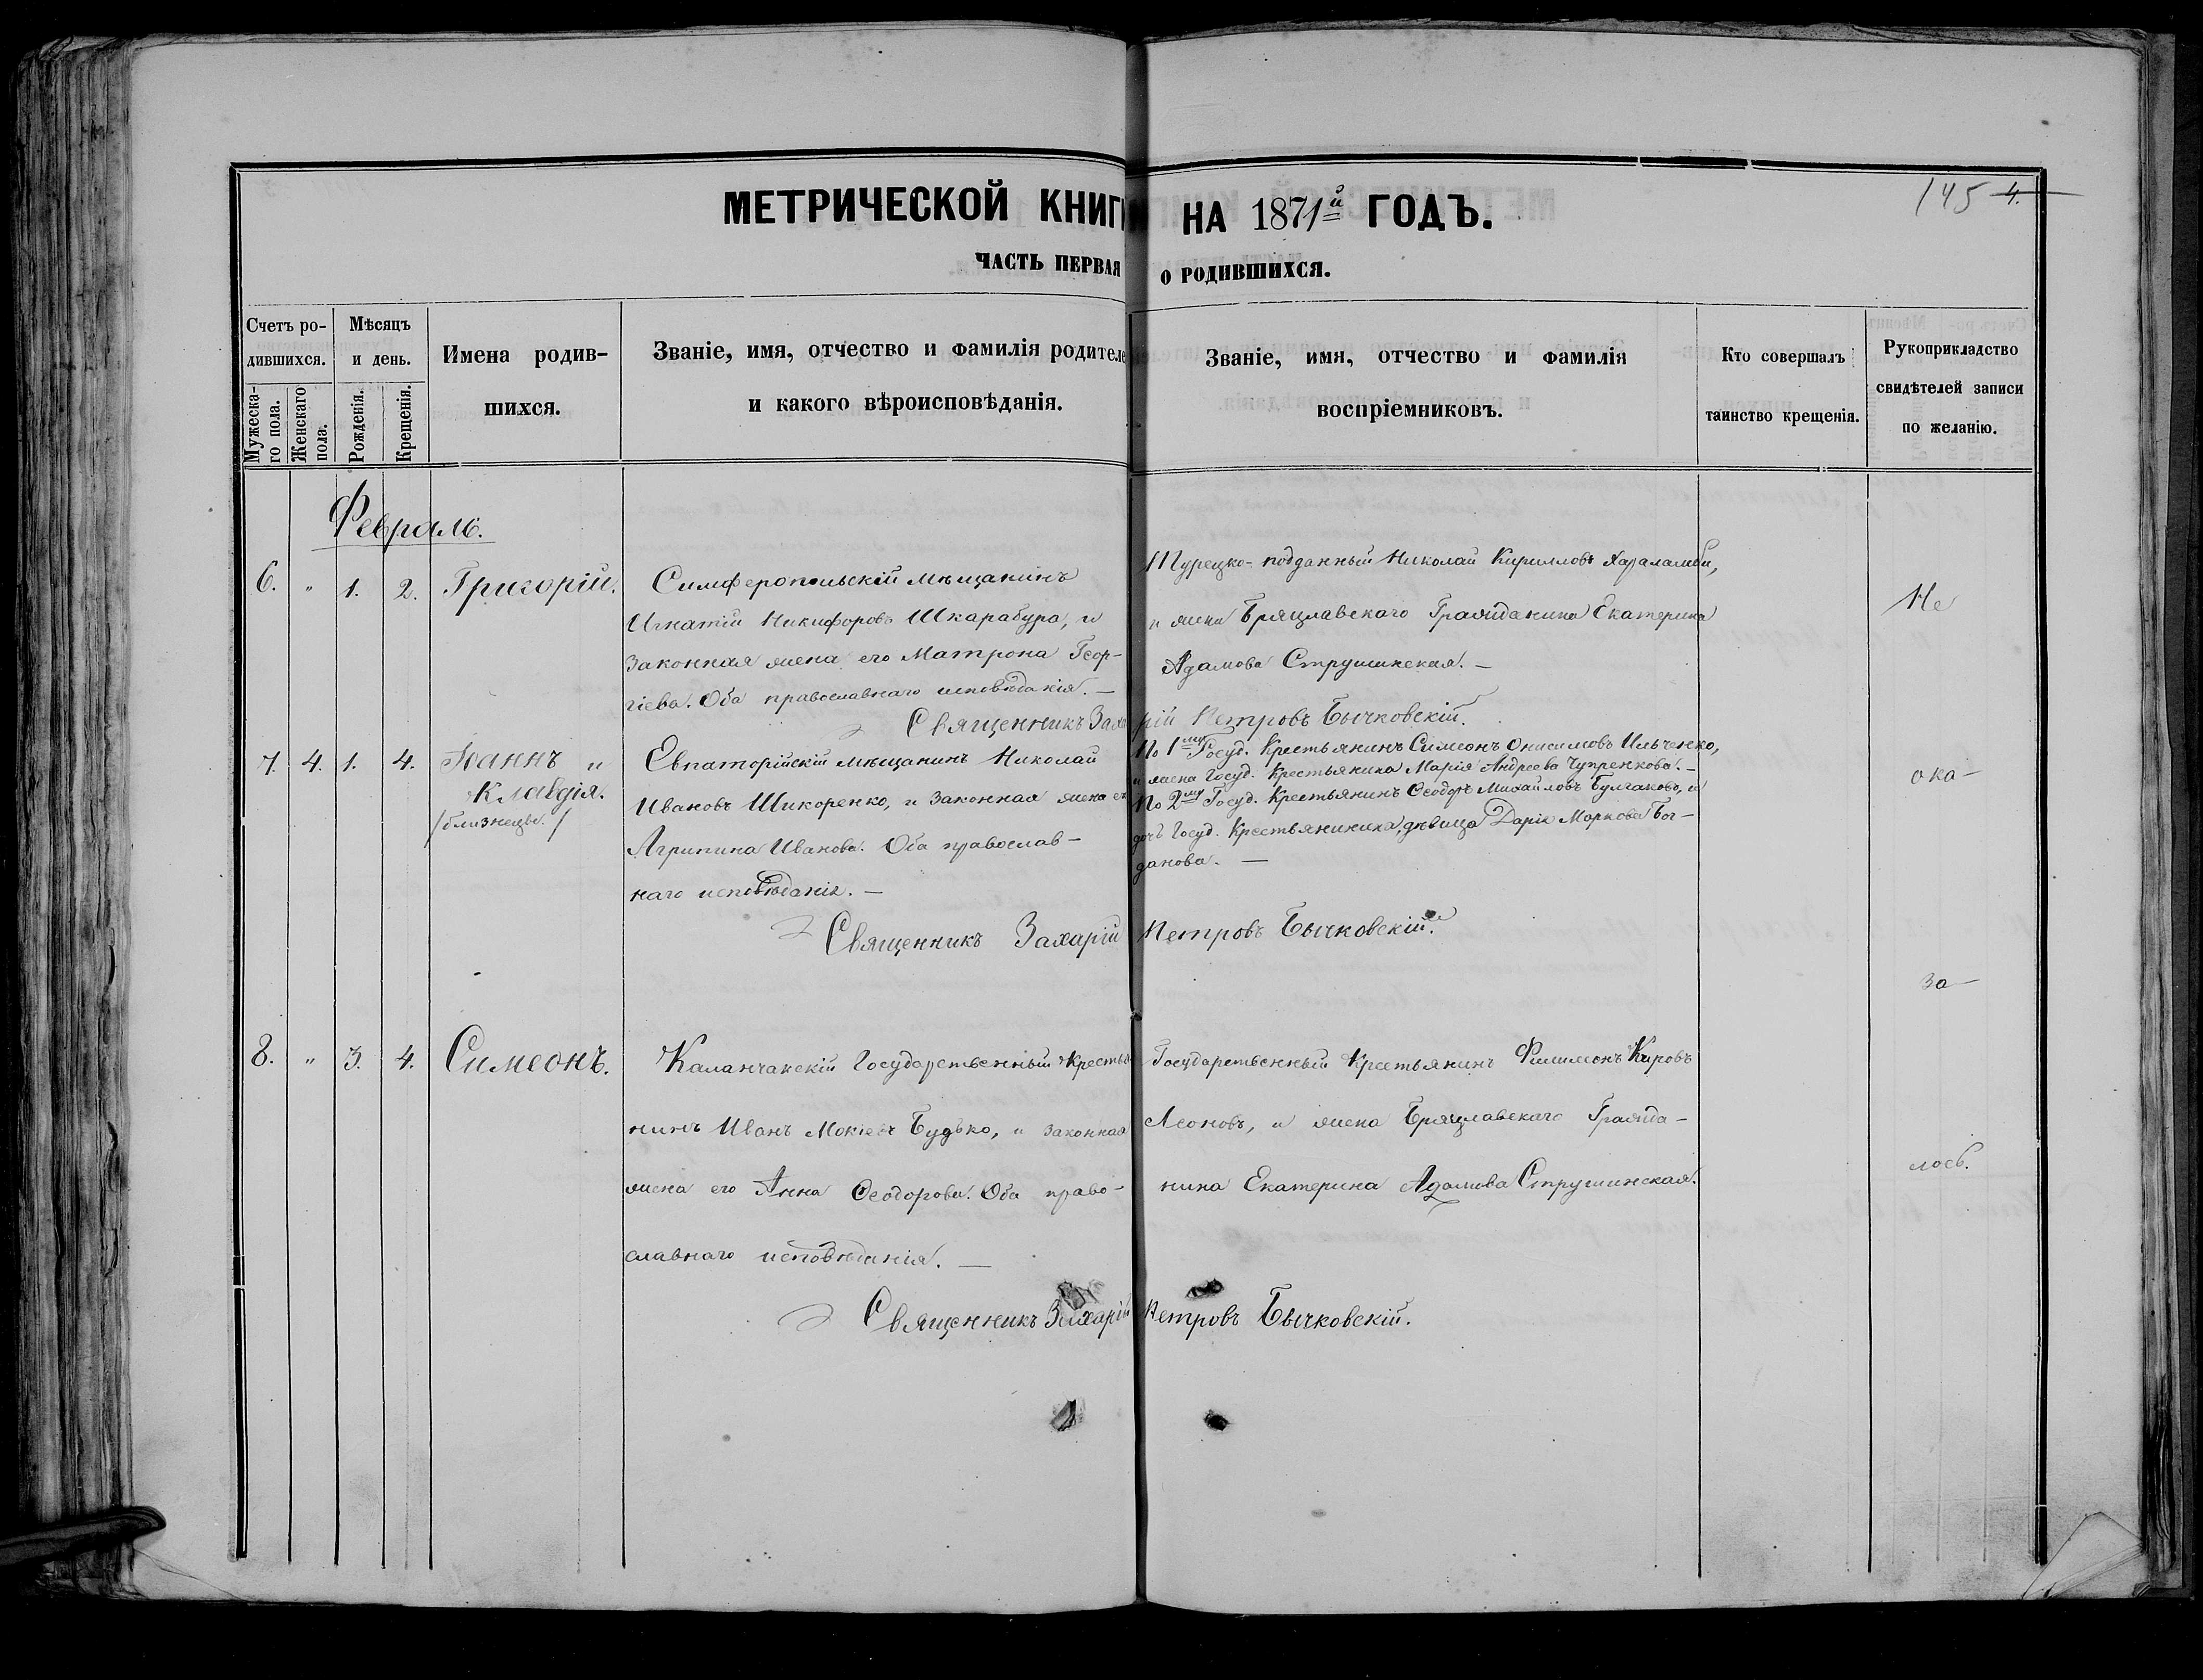 МЕТРИЧЕСКОЙ КНИГИ НА 1871й ГОДЪ.
145 4.
ЧАСТЬ ПЕРВАЯ О РОДИВШИХСЯ.
Счетъ ро-
дившихся.
Мужеска-
го пола.
Женскаго
пола.
Мѣсяцъ
и день.
Рожденія.
Крещенія.
Имена родив-
шихся.
Званіе, имя, отчество и фамилія родителе
и какого вѣроисповѣданія.
Званіе, имя, отчество и фамилія
воспріемниковъ.
Кто совершалъ
таинство крещенія.
Рукоприкладство
свидѣтелей записи
по желанію.
Февраль.
6. " 1. 2. Григорій.
Симферопольскій мѣщанинъ
Игнатій Никифоровъ Шкарабура, и
законная жена его Матрона Геор-
гіева. Оба православнаго исповѣданія. —
Турецко-подданный Николай Кирилловъ Харалампи,
и жена Брацлавскаго Гражданина Екатерина
Адамова Струшинская. —
Священникъ Захарій Петровъ Бычковскій.
7. 4. 1. 4. Іоаннъ и
Клавдія.
/близнецы./
Евпаторійскій мѣщанинъ Николай
Ивановъ Шикоренко, и законная жена ег
Агрипина Иванова. Оба православ-
наго исповѣданія. —
По 1му Госуд. Крестьянинъ Симеонъ Онисимовъ Ильченко,
и жена Госуд. Крестьянина Марія Андреева Чупренкова. —
По 2му Госуд. Крестьянинъ Ѳеодоръ Михайловъ Булгаковъ, и
дочь Госуд. Крестьянина, дѣвица Дарія Маркова Бог-
данова. —
Священникъ Захарій Петровъ Бычковскій.
8. " 3. 4. Симеонъ.
Каланчакскій Государственный Крестья
нинъ Иванъ Мокіевъ Будько, и законная
жена его Анна Ѳеодорова. Оба право-
славнаго исповѣданія. —
Государственный Крестьянинъ Филимонъ Кировъ
Леоновъ, и жена Брацлавскаго Гражда-
нина Екатерина Адамова Струшинская.
Священникъ Захарій Петровъ Бычковскій.
Не
ока-
за-
лось.